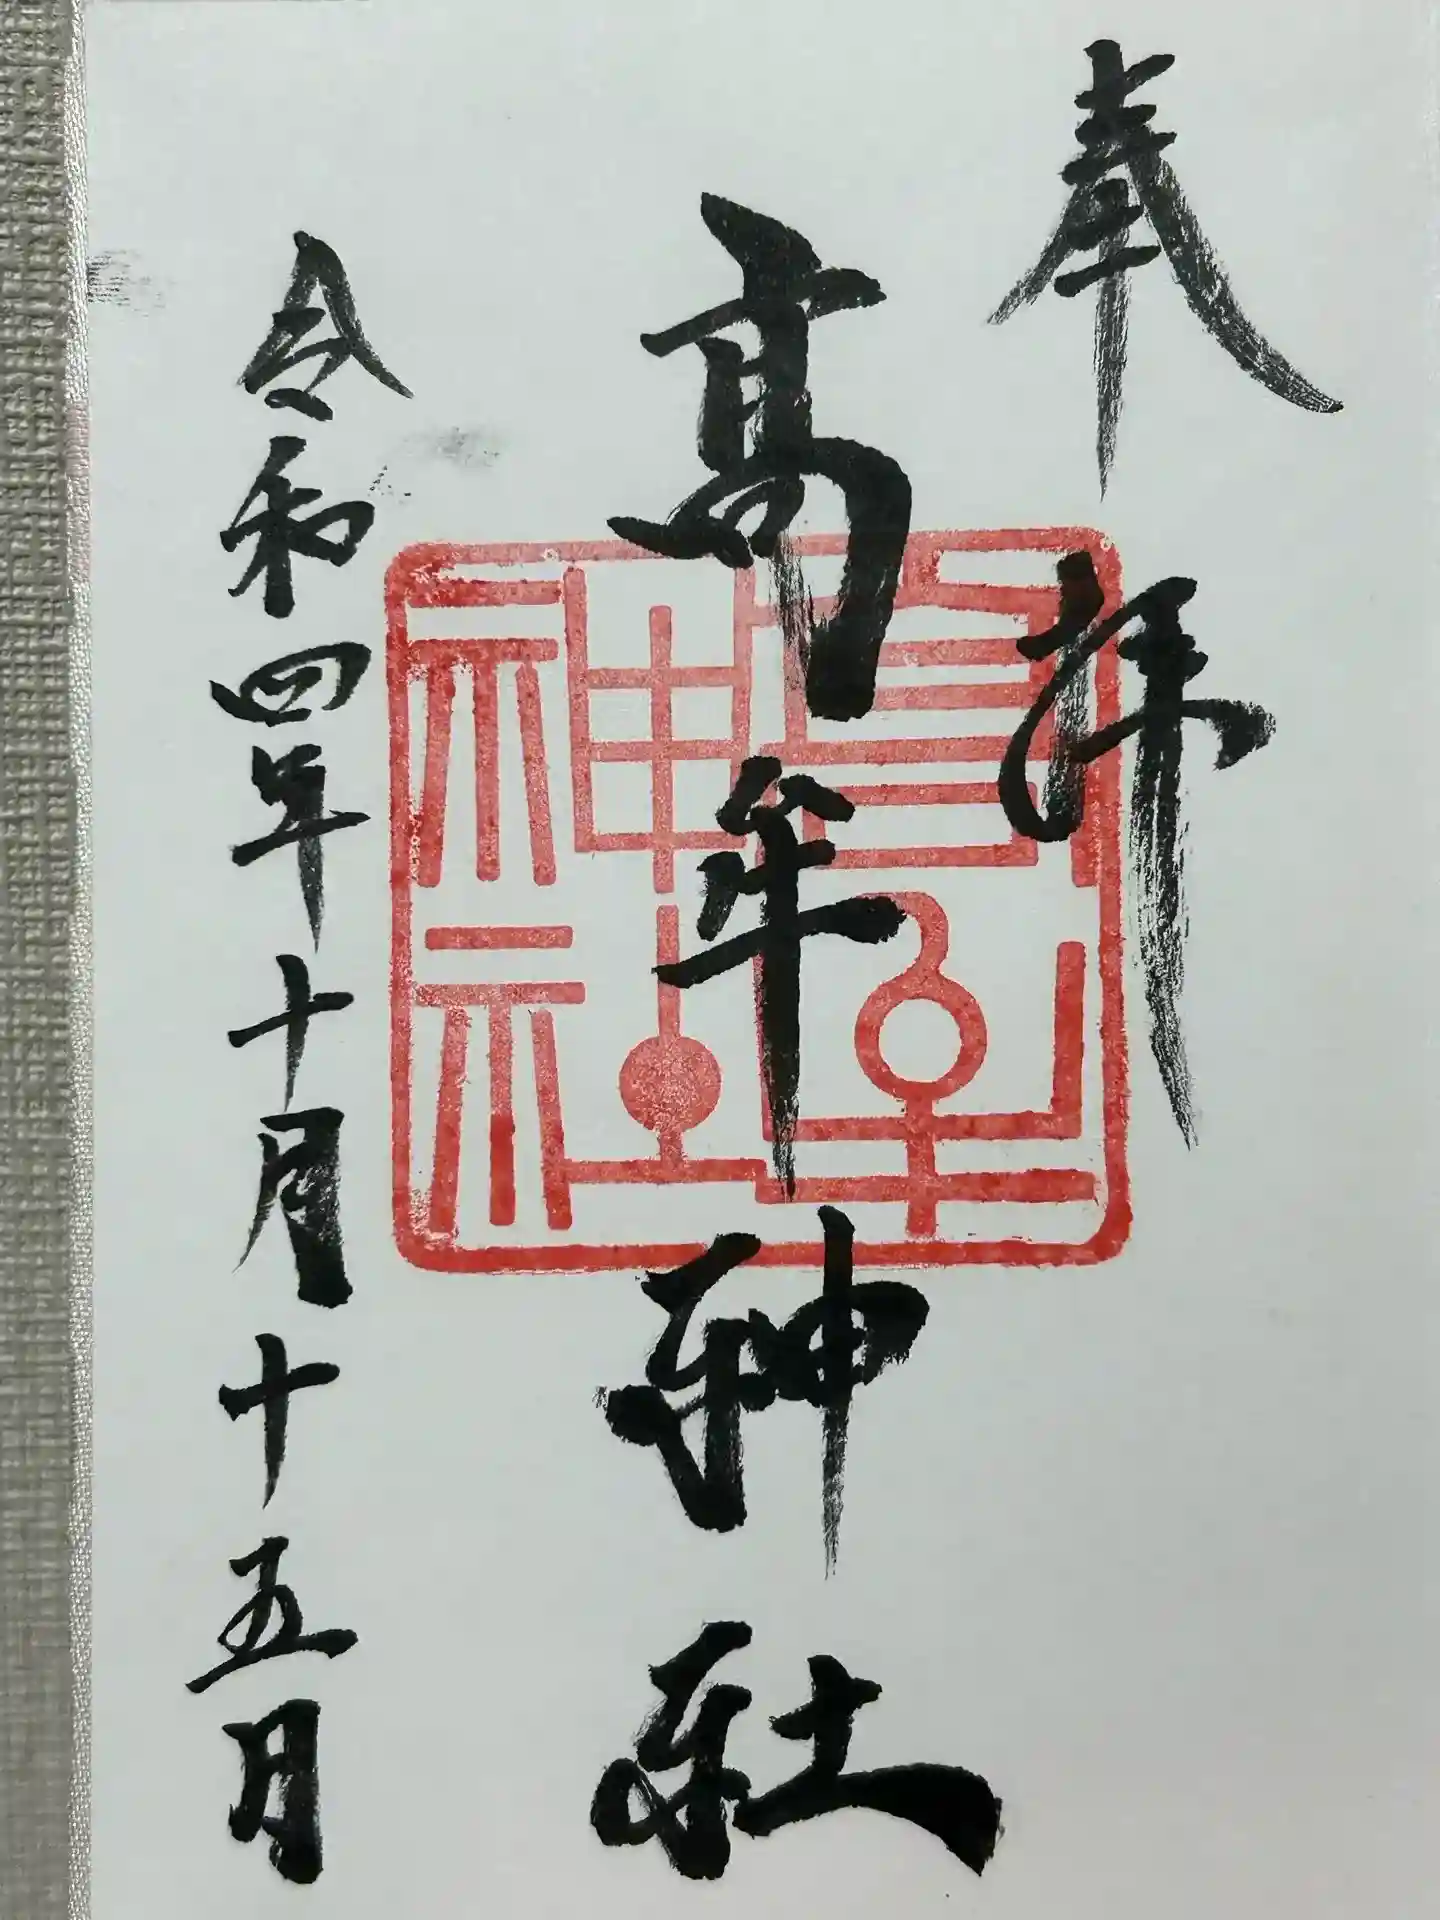 奉拝
髙牟神社
令和四年十月十五日
髙牟神社